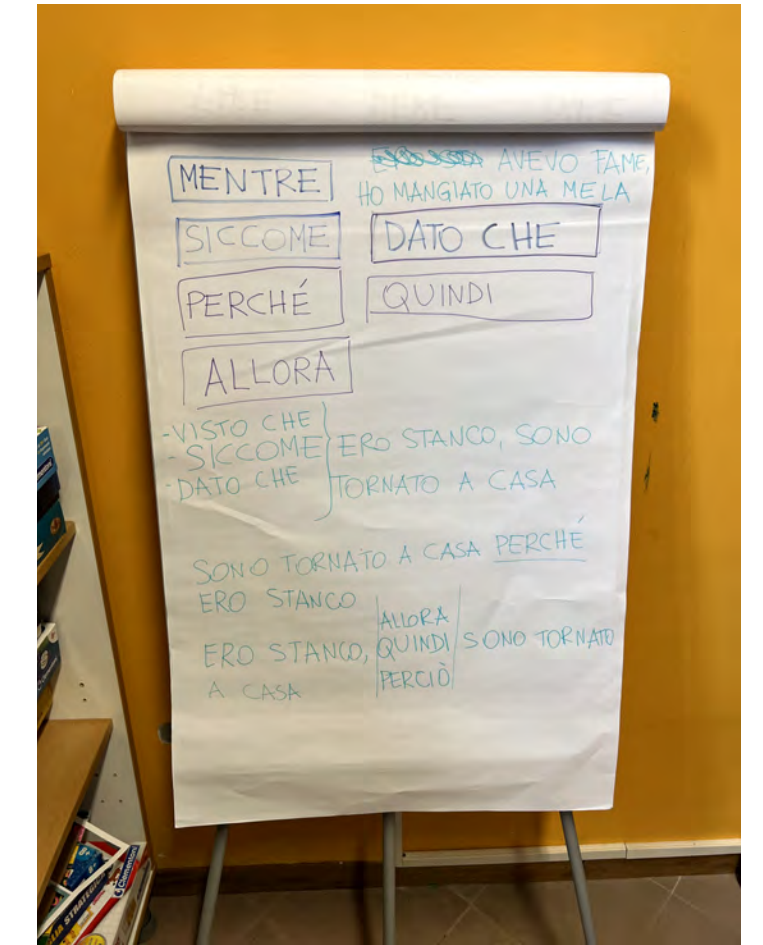 MENTRE
AVEVO FAME,
HO MANGIATO UNA MELA
SICCOME
DATO CHE
PERCHÉ
QUINDI
ALLORA
-VISTO CHE
- SICCOME
-DATO CHE
ERO STANCO, SONO
TORNATO A CASA
SONO TORNATO A CASA PERCHÉ
ERO STANCO
ERO STANCO,
ALLORA
QUINDI
PERCIÒ
SONO TORNATO
A CASA
Clementoni